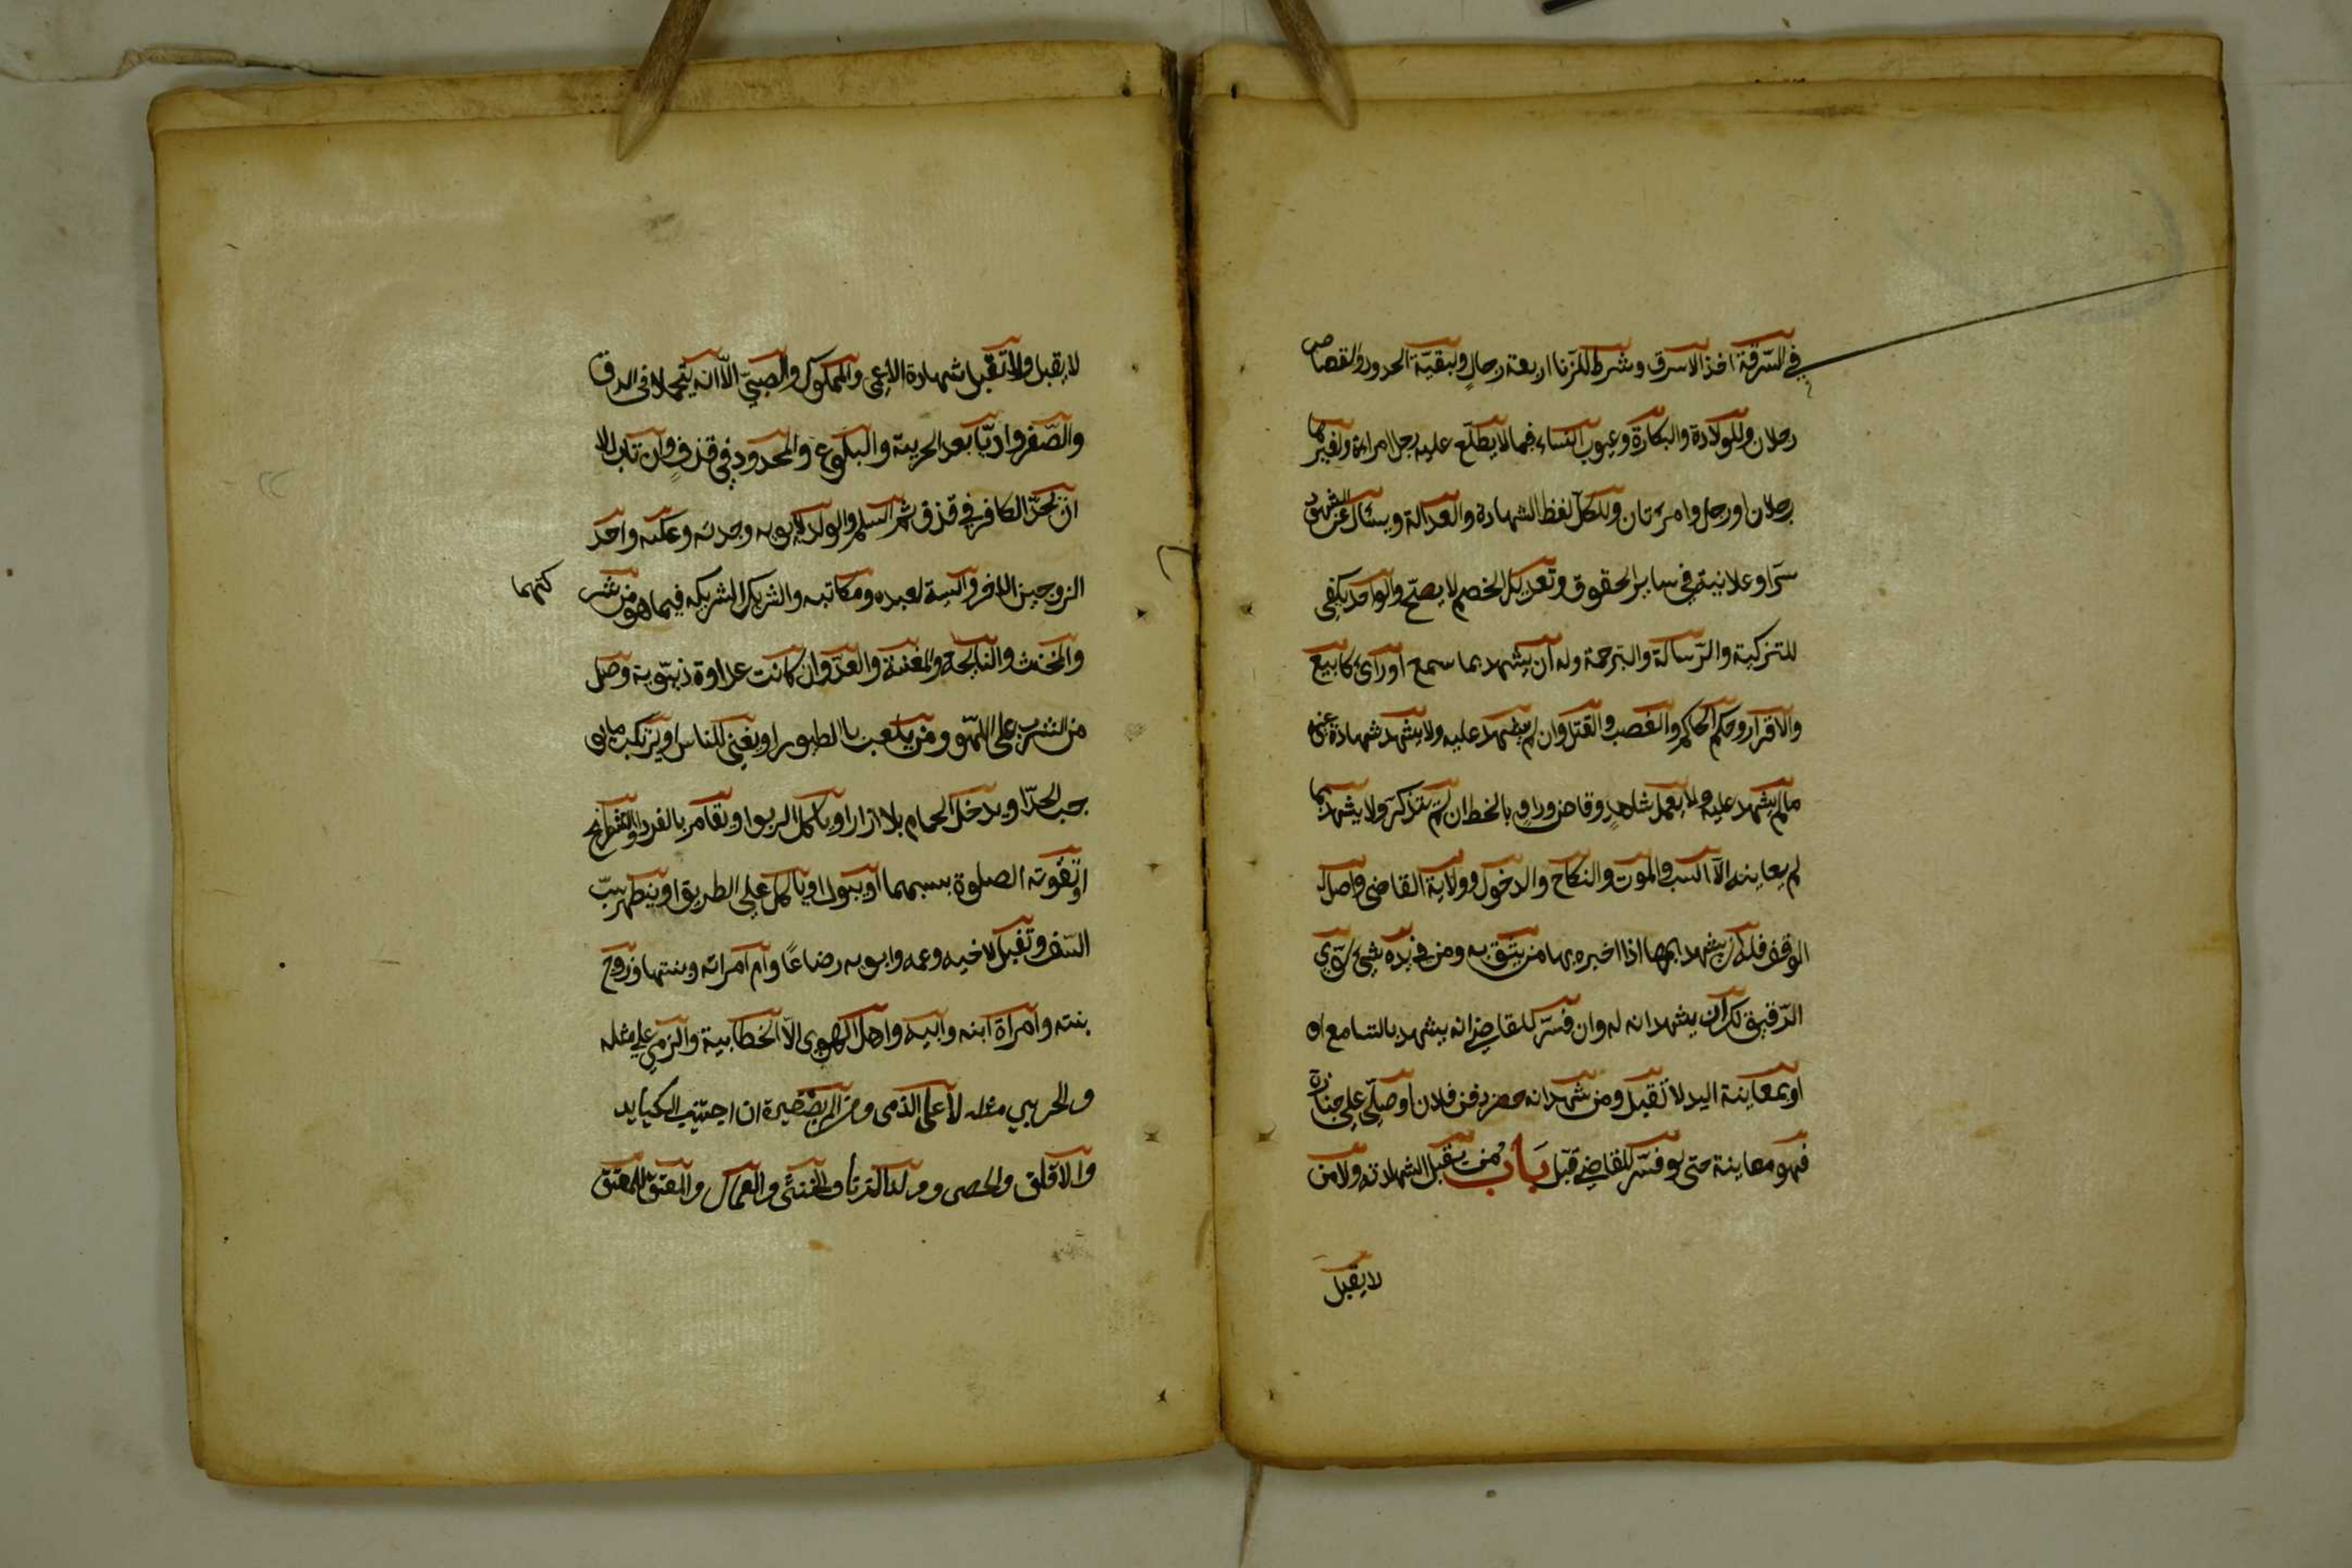 في السّرقة اخذ لا سرق وشرط للزنا اربعة رجالٍ ولبقيّة الحدود والقصاص
رجلان وللولادة والبكارة وعيوب النساء فيما لا يطلّع عليه رجل امراءة ولغيرها
رجلان او رجل وامرءتان وللكلّ لفظ الشهادة والعدالة ويسئال عن الشهود
سرّا وعلانية في ساير الحقوق وتعديل الخصم لا يصحّ والواحد يكفي
للتزكية والرّسالة والترجمة وله ان يشهد بما سمع او رأى كا بيع
والاقرار وحكم الحاكم والغصب والقتل وان لم يشهد عليه ولا يشهد شهادة غيره
مالم يشهد عليه ولا يعمل شاهدٍ وقاض وراوٍ بالخط ان لم يتذكر ولا يشهد بما
لم يعاينه الّا النسب والموت والنكاح والدخول وولاية القاضي واصل
الوقف فله ان يشهد بها اذا اخبره بها من يثق به ومن في يده شيئ سوى
الرّقيق لك ان يشهد انه له وان فسّر للقاضي انه يشهد بالتسامع او
او بمعاينة اليد لا تقبل ومن شهد انه حضر دفن فلان او صلّي على جنازة
فهو معاينة حتى لو فسّر للقاضي قبل باب من تقبل الشهادته ولا من
لا يقبل
لا يقبل ولا تقبل شهادة الاعمى والمملوك والصبيّ الّا انه يتحملا في الرق
والصّغر واديّا بعد الحرية والبلوغ والمحدود في قذفٍ وان تاب الا
ان يحدّ الكافر في قذف ثم اسلم والولد لابويه وجديه وعكسه واحد
الزوجين للاخر والسيد لعبده ومكاتبه والشريك لشريكه فيما هو من شر
كتهما
والمخنث والنايحة والمغنية والعدوّ ان كانت عداوة دنيوية ومد
من الشرب على اللهو ومن يلعب با الطيور او يغني للناس او يرتكب ما يو
جب الحدّ او يدخل الحمام بلا ازار او ياكل الربوا او يقامر بالنرد والشطرنج
او تفوته الصلوة بسببهما او يبول او ياكل على الطريق او يظهر سبّ
السلف وتقبل لاخيه وعمه وابويه رضاعاً وام امراته وبنتها وزوج
بنته وامراة ابنه وابيه واهل الهوى الّا الخطابية والذمي على مثله
والحربي مثله لا على الذمى ومن الم بصغيرة ان اجتنب الكباير
والاقلف والخصى وولد الزنا والخنثى والعمال والمعتق للمعتق